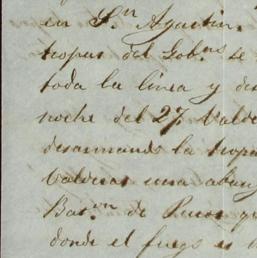 en Sn Agustin.
tropas del Gobno se
toda la linea y des
noche del 27 Valde
desarmando la tropa
Valdeas una aban
Baton de Puros q
donde el fuego es